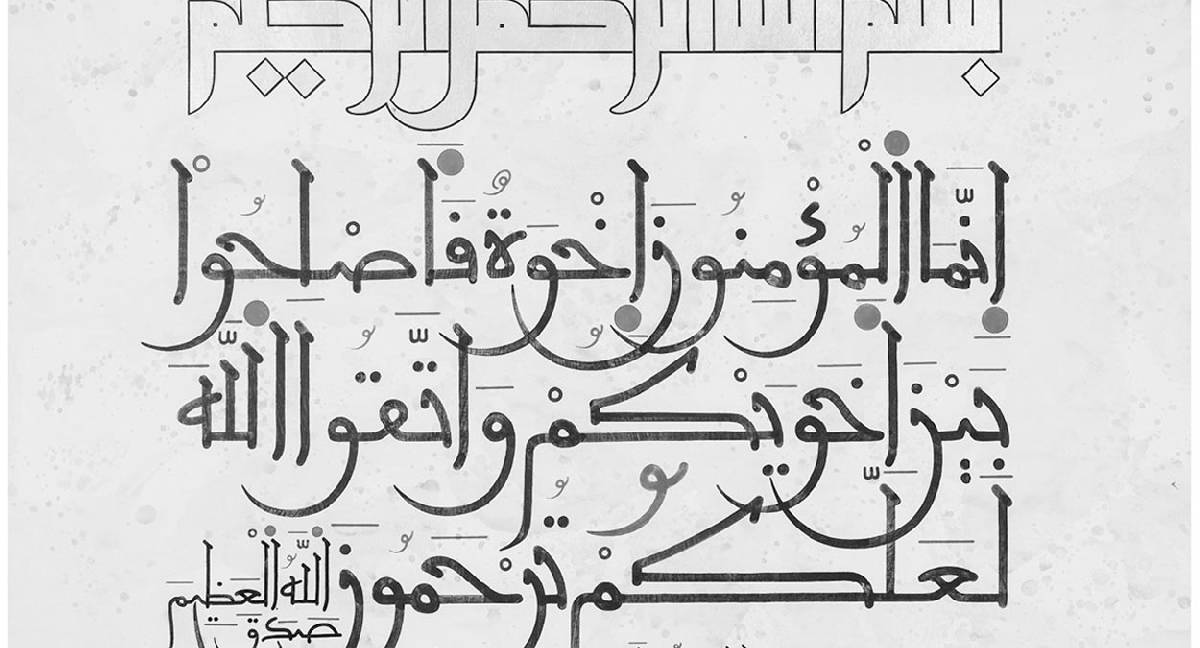 بسم الله الرحمن الرحيم
إِنَّمَا الْمُؤْمِنُونَ إِخْوَةٌ فَأَصْلِحُوا
بَيْنَ أَخَوَيْكُمْ وَاتَّقُوا اللَّهَ
لَعَلَّكُمْ تُرْحَمُونَ
صدق الله العظيم